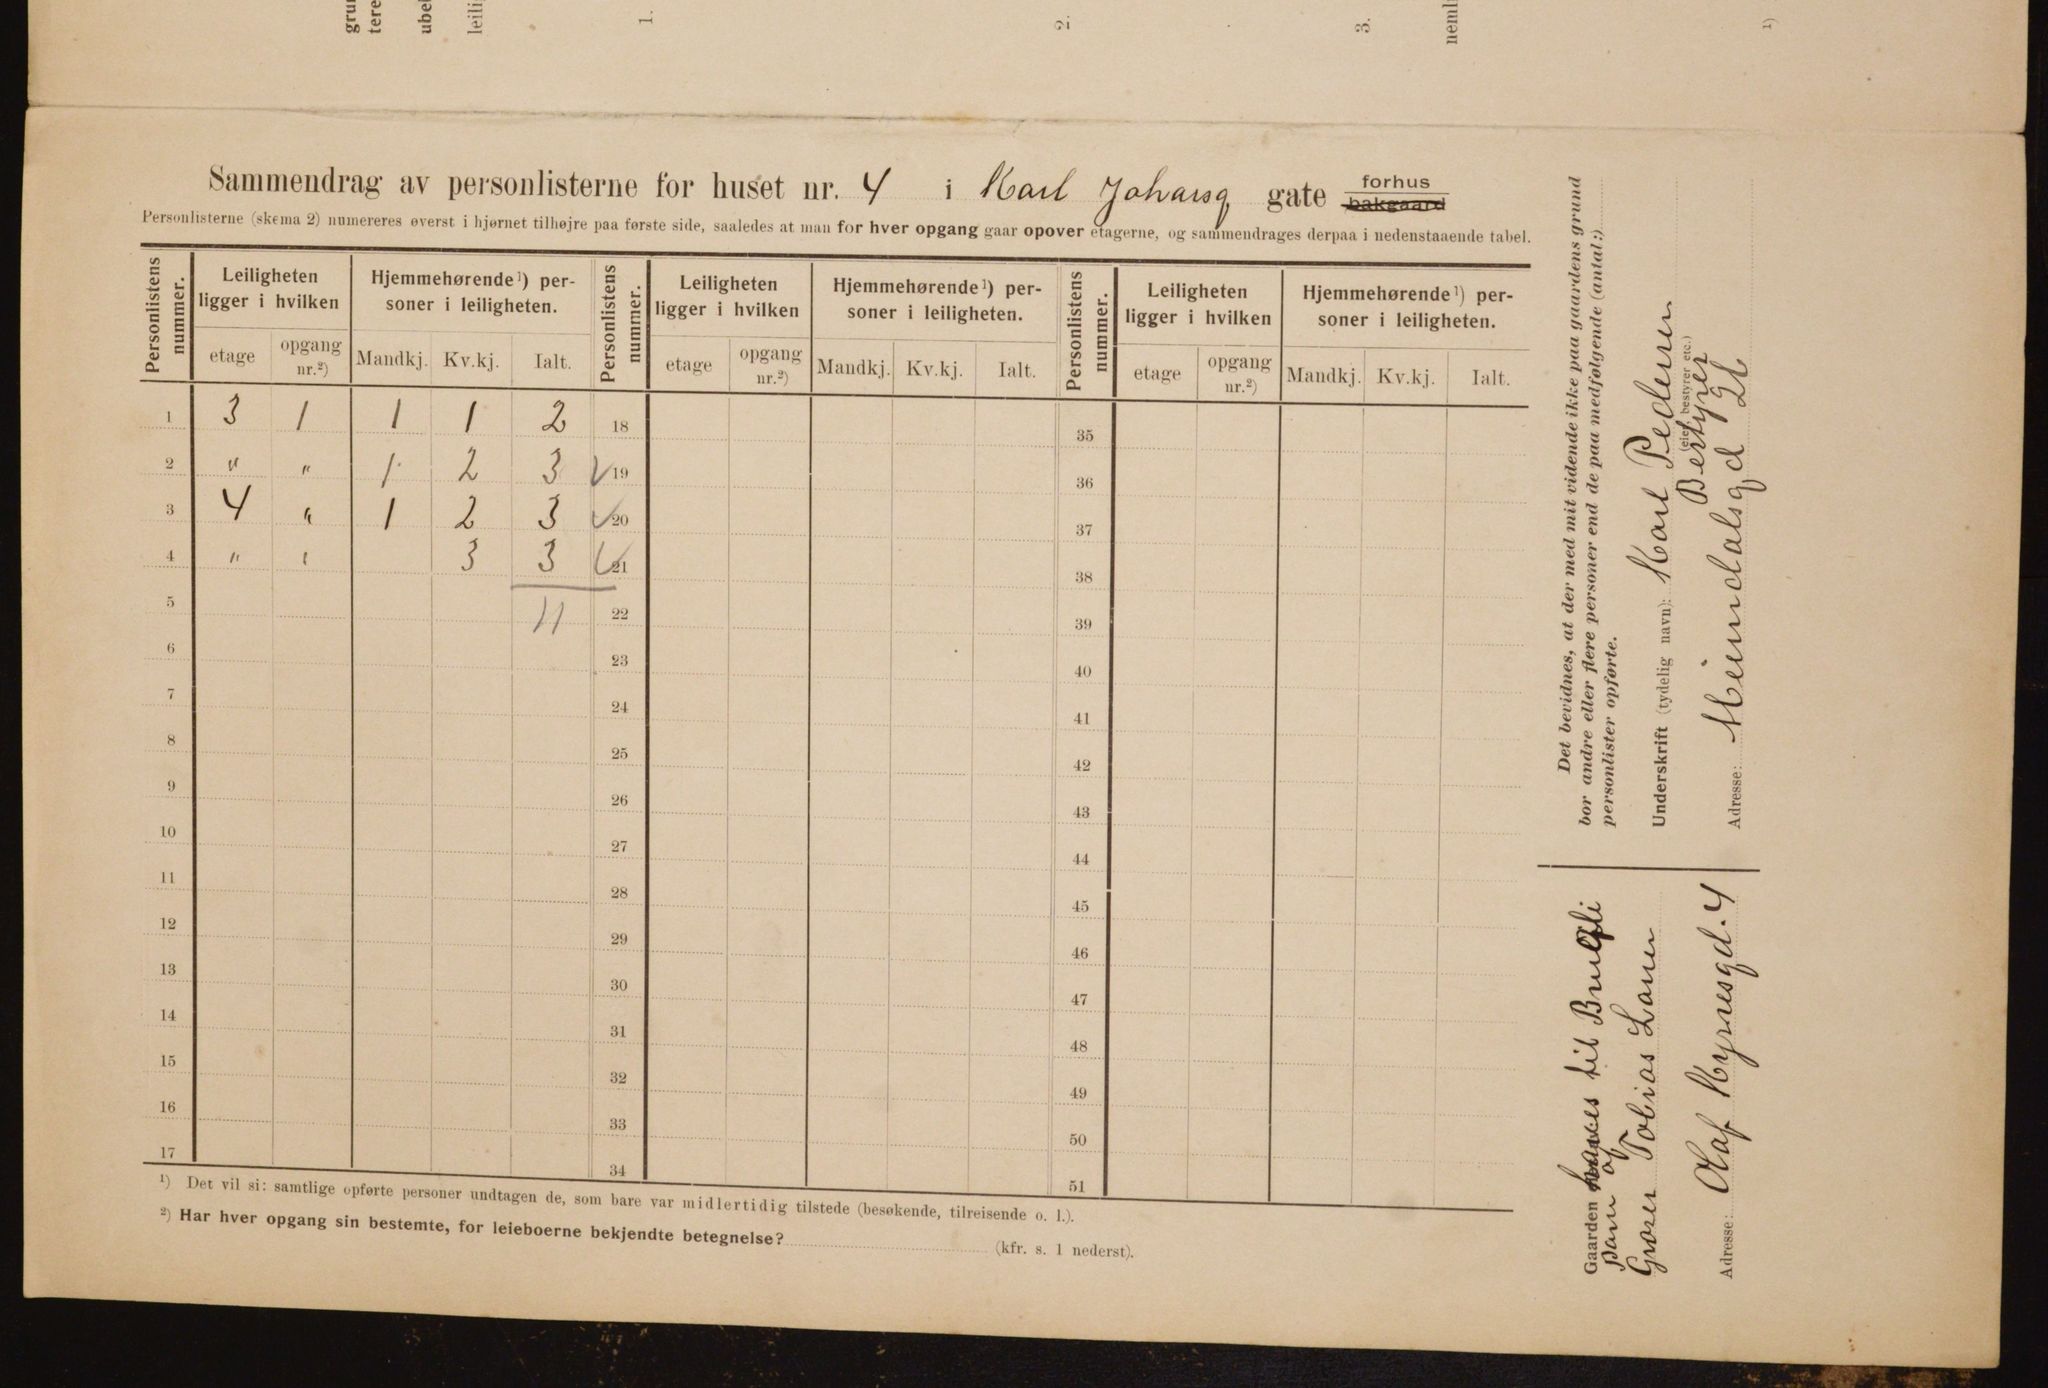 grun
tere
ubel
leilig
1.
2.
3.
neml:
1)
Sammendrag av personlisterne for huset nr. 4 i Karl Johansg gate forhus bakgaard
Personlisterne (skema 2) numereres øverst i hjørnet tilhøjre paa første side, saaledes at man for hver opgang gaar opover etagerne, og sammendrages derpaa i nedenstaaende tabel.
Personlistens nummer. Leiligheten ligger i hvilken Hjemmehørende 1) personer i leiligheten. Personlistens nummer. Leiligheten ligger i hvilken Hjemmehørende 1) personer i leiligheten. Personlistens nummer. Leiligheten ligger i hvilken Hjemmehørende 1) personer i leiligheten.
etage opgang nr.2) Mandkj. Kv.kj. Ialt. etage opgang nr.2) Mandkj. Kv.kj. Ialt. etage opgang nr.2) Mandkj. Kv.kj. Ialt.
1 3 1 1 1 2 18 35
2 " " 1 2 3 19 36
3 4 " 1 2 3 20 37
4 " " 3 3 21 38
5 11 22 39
6 23 40
7 24 41
8 25 42
9 26 43
10 27 44
11 28 45
12 29 46
13 30 47
14 31 48
15 32 49
16 33 50
17 34 51
1) Det vil si: samtlige opførte personer undtagen de, som bare var midlertidig tilstede (besøkende, tilreisende o. l.).
2) Har hver opgang sin bestemte, for leieboerne bekjendte betegnelse? (kfr. s. 1 nederst).
Det bevidnes, at der med mit vidende ikke paa gaardens grund
bor andre eller flere personer end de paa medfølgende (antal:)
personlister opførte.
Underskrift (tydelig navn): Karl Pedersen
Bestyrer
(eier, bestyrer etc.)
Adresse: Heimdalsgd 26
Gaarden til
af
Tobias
Adresse: Olaf Kyrresgd. 4